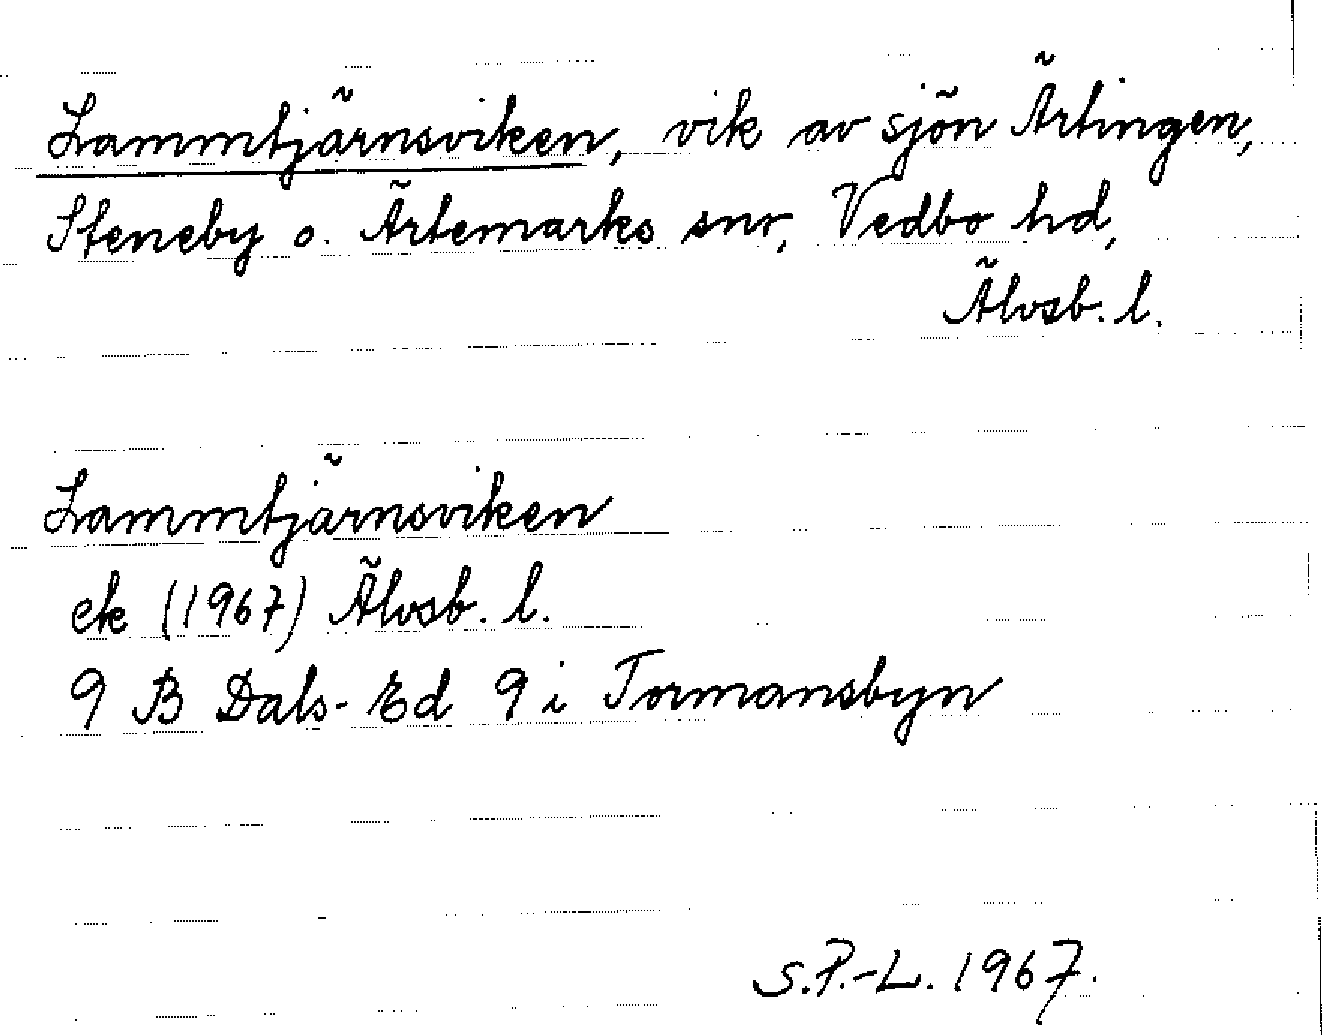 Lammtjärnsviken, vik av sjön Ärtingen,
Steneby o. Ärtemarks snr, Vedbo hd,
Älvsb. l.
Lammtjärnsviken
ek (1967) Älvsb. l.
9 B Dals-Ed 9 i Tormansbyn
S.P.-L. 1967.